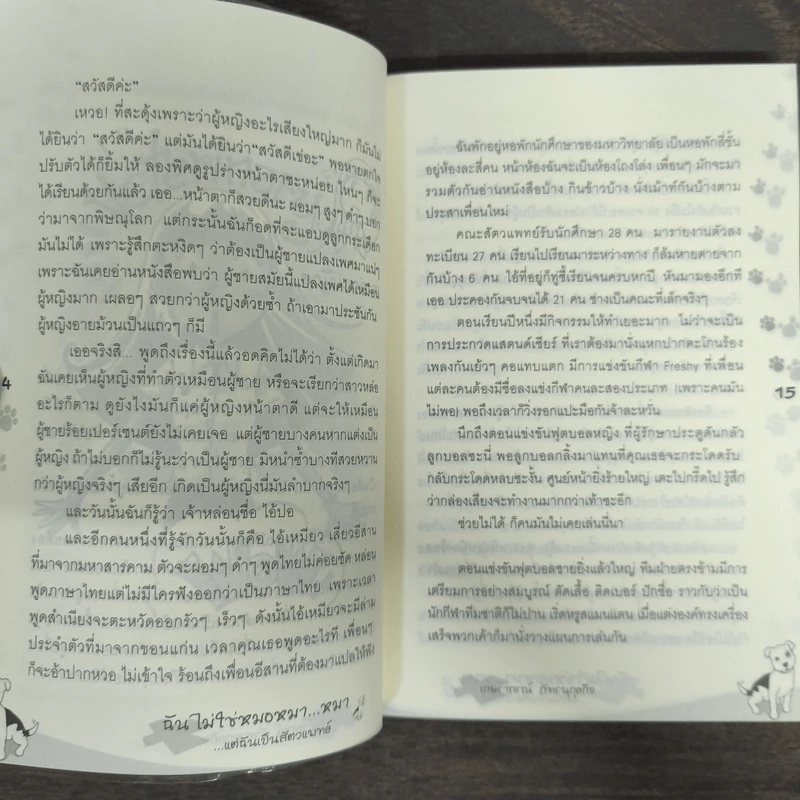 “สวัสดีค่ะ”
เหวอ! ที่สะดุ้งเพราะว่าผู้หญิงอะไรเสียงใหญ่มาก ก็มันไม่
ได้ยินว่า “สวัสดีค่ะ” แต่มันได้ยินว่า“สวัสดีเช่อะ” พอหายตกใจ
ปรับตัวได้ก็ยิ้มให้ ลองพิศดูรูปร่างหน้าตาซะหน่อย ไหนๆ ก็จะ
ได้เรียนด้วยกันแล้ว เออ...หน้าตาก็สวยดีนะ ผอมๆ สูงๆ ดำๆ บอก
ว่ามาจากพิษณุโลก แต่กระนั้นฉันก็อดที่จะแอบดูลูกกระเดือก
มันไม่ได้ เพราะรู้สึกตะหงิดๆ ว่าต้องเป็นผู้ชายแปลงเพศมาแน่ๆ
เพราะฉันเคยอ่านหนังสือพบว่า ผู้ชายสมัยนี้แปลงเพศได้เหมือน
ผู้หญิงมาก เผลอๆ สวยกว่าผู้หญิงด้วยซ้ำ ถ้าเอามาประชันกัน
ผู้หญิงอายม้วนเป็นแถวๆ ก็มี
เออจริงสิ... พูดถึงเรื่องนี้แล้วอดคิดไม่ได้ว่า ตั้งแต่เกิดมา
ฉันเคยเห็นผู้หญิงที่ทำตัวเหมือนผู้ชาย หรือจะเรียกว่าสาวหล่อ
อะไรก็ตาม ดูยังไงมันก็แค่ผู้หญิงหน้าตาดี แต่จะให้เหมือน
ผู้ชายร้อยเปอร์เซนต์ยังไม่เคยเจอ แต่ผู้ชายบางคนหากแต่งเป็น
ผู้หญิง ถ้าไม่บอกก็ไม่รู้นะว่าเป็นผู้ชาย มิหนำซ้ำบางที่สวยหวาน
กว่าผู้หญิงจริงๆ เสียอีก เกิดเป็นผู้หญิงนี่มันลำบากจริงๆ
และวันนั้นฉันก็รู้ว่า เจ้าหล่อนชื่อ ไอ้ปอ
และอีกคนหนึ่งที่รู้จักวันนั้นก็คือ ไอ้เหมียว เสี่ยวอีสาน
ที่มาจากมหาสารคาม ตัวจะผอมๆ ดำๆ พูดไทยไม่ค่อยชัด หล่อน
พูดภาษาไทยแต่ไม่มีใครฟังออกว่าเป็นภาษาไทย เพราะเวลา
พูดสำเนียงจะตะหวัดออกรัวๆ เร็วๆ ดังนั้นไอ้เหมียวจะมีล่าม
ประจำตัวที่มาจากขอนแก่น เวลาคุณเธอพูดอะไรที เพื่อนๆ
ก็จะอ้าปากหวอ ไม่เข้าใจ ร้อนถึงเพื่อนอีสานที่ต้องมาแปลให้ฟัง
4
ฉันไม่ใช่หมอหมา...หมา
...แต่ฉันเป็นสัตวแพทย์
ฉันพักอยู่หอพักนักศึกษาของมหาวิทยาลัย เป็นหอพักสี่ชั้น
อยู่ห้องละสี่คน หน้าห้องฉันจะเป็นห้องโถงโล่ง เพื่อนๆ มักจะมา
รวมตัวกันอ่านหนังสือบ้าง กินข้าวบ้าง นั่งเม้าท์กันบ้างตาม
ประสาเพื่อนใหม่
คณะสัตวแพทย์รับนักศึกษา 28 คน มารายงานตัวลง
ทะเบียน 27 คน เรียนไปเรียนมาระหว่างทาง ก็ล้มหายตายจาก
กันบ้าง 6 คน ไอ้ที่อยู่ก็ทู่ซี้เรียนจนครบหกปี หันมามองอีกที
เออ ประคองกันจบจนได้ 21 คน ช่างเป็นคณะที่เล็กจริงๆ
ตอนเรียนปีหนึ่งมีกิจกรรมให้ทำเยอะมาก ไม่ว่าจะเป็น
การประกวดแสตนด์เชียร์ ที่เราต้องมานั่งแหกปากตะโกนร้อง
เพลงกันเย้วๆ คอแทบแตก มีการแข่งขันกีฬา Freshy ที่เพื่อน
แต่ละคนต้องมีชื่อลงแข่งกีฬาคนละสองประเภท (เพราะคนมัน
ไม่พอ) พอถึงเวลาก็วิ่งรอกแปะมือกันจ้าละหวั่น
นึกถึงตอนแข่งขันฟุตบอลหญิง ที่ผู้รักษาประตูดันกลัว
ลูกบอลซะนี่ พอลูกบอลกลิ้งมาแทนที่คุณเธอจะกระโดดรับ
กลับกระโดดหลบซะงั้น ศูนย์หน้ายิ่งร้ายใหญ่ เตะไปกรี๊ดไป รู้สึก
ว่ากล่องเสียงจะทำงานมากกว่าเท้าซะอีก
ช่วยไม่ได้ ก็คนมันไม่เคยเล่นนี่นา
ตอนแข่งขันฟุตบอลชายยิ่งแล้วใหญ่ ทีมฝ่ายตรงข้ามมีการ
เตรียมการอย่างสมบูรณ์ ตัดเสื้อ ติดเบอร์ ปักชื่อ ราวกับว่าเป็น
นักกีฬาทีมชาติก็ไม่ปาน เริ่ดหรูสแมนแตน เมื่อแต่งองค์ทรงเครื่อง
เสร็จพวกเค้าก็มานั่งวางแผนการเล่นกัน
15